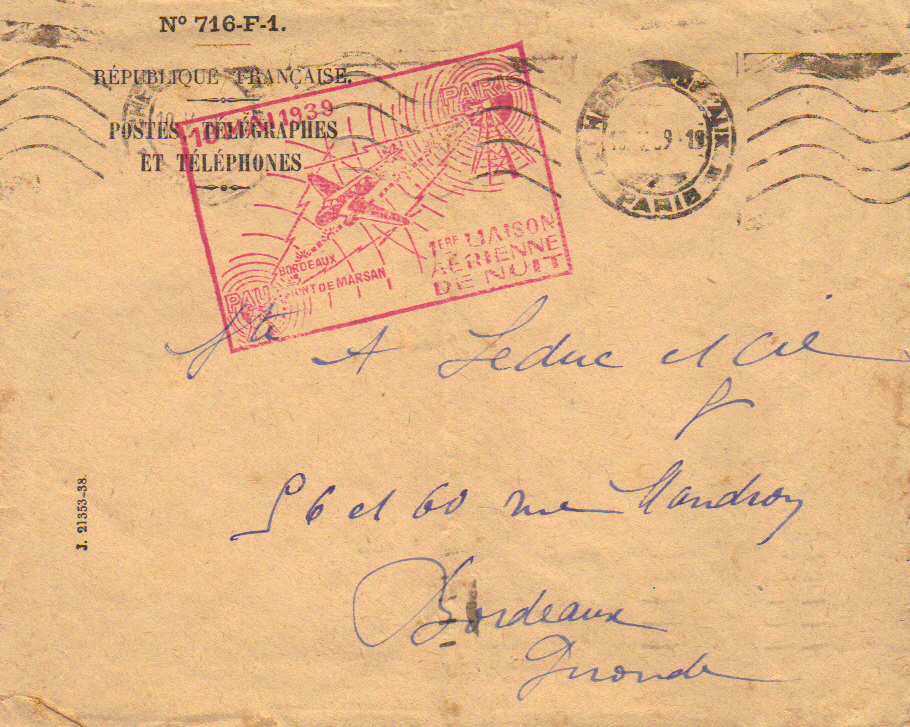 N° 716-F-1.
RÉPUBLIQUE FRANÇAISE.
POSTES, TÉLÉGRAPHES
ET TÉLÉPHONES
10 MAI 1939
PARIS
BORDEAUX
MONT DE MARSAN
PAU
1ERE LIAISON
AÉRIENNE
DE NUIT
PARIS
Sté A Leduc et Cie
56 et 60 rue Mandron
Bordeaux
Gironde
J. 21353-38.